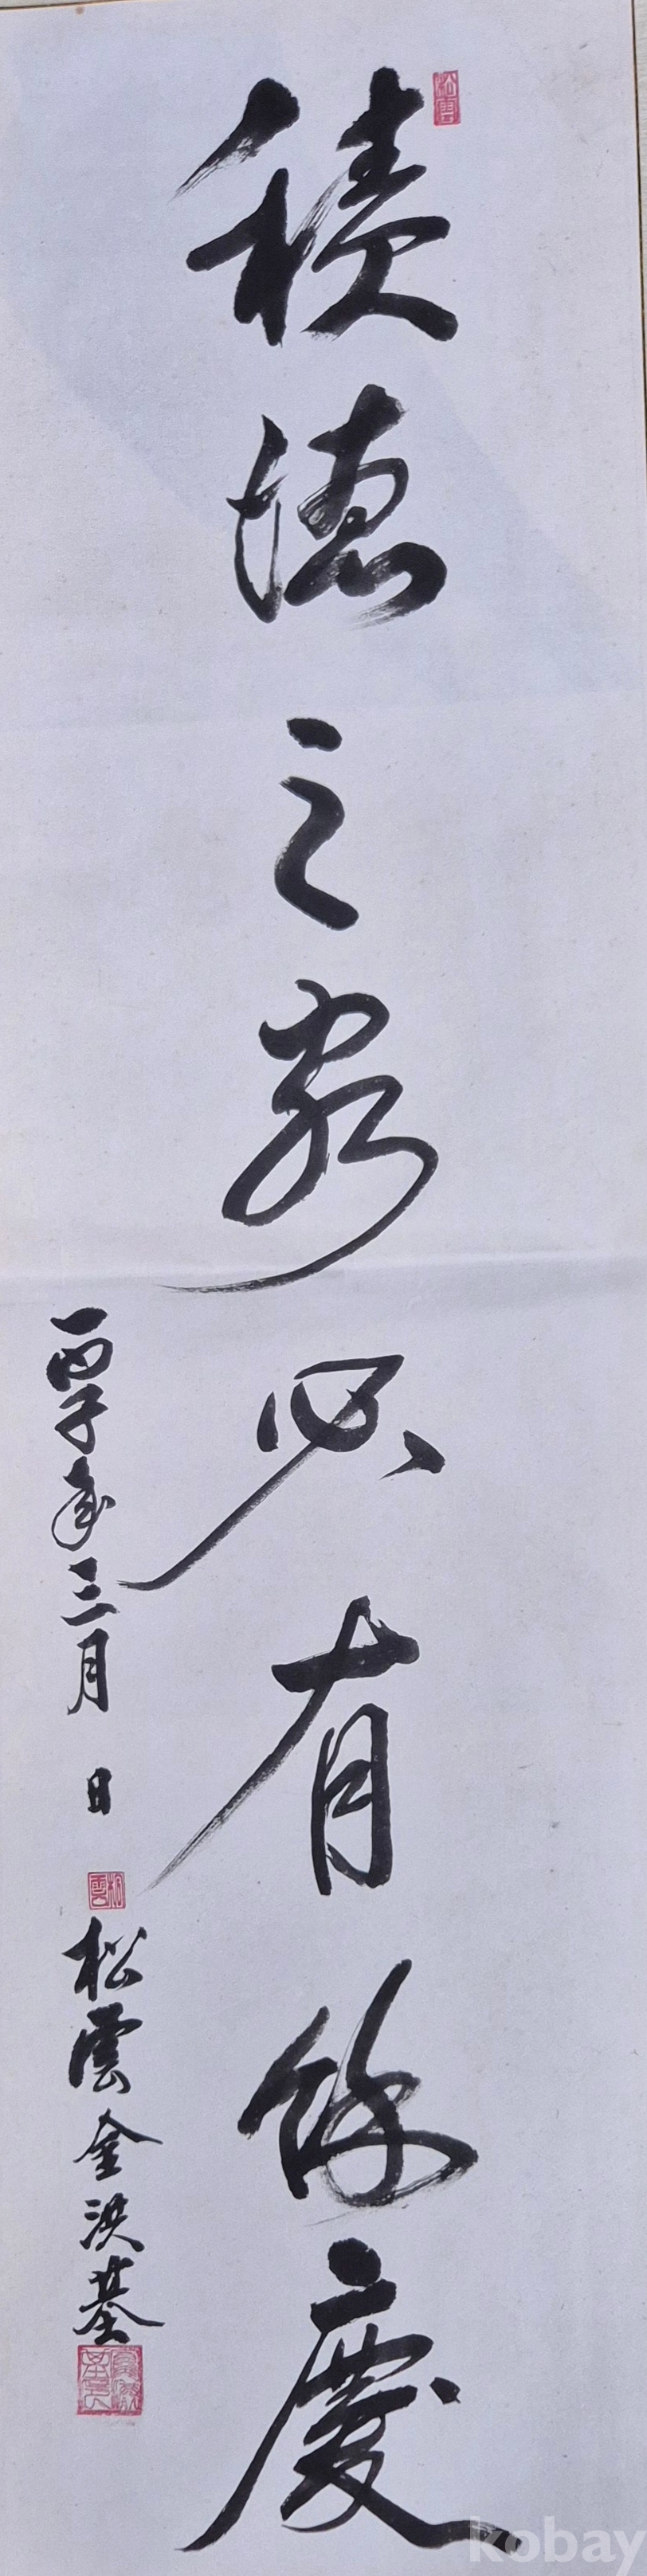 積德之家必有餘慶
丙子年三月 日 松雲 金洪基
松雲
松雲
kobay